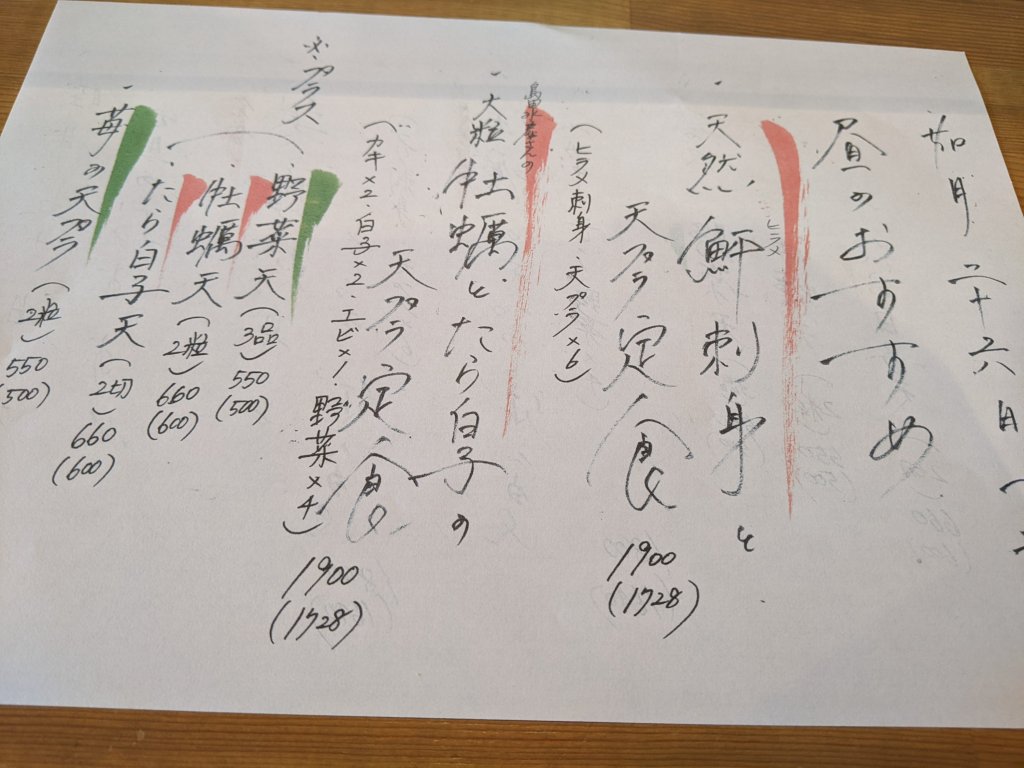 如月 二十六日
昼のおすすめ
・天然鮃刺身と
ヒラメ
天プラ定食 1900
(1728)
(ヒラメ刺身・天プラ×6)
・大粒牡蠣とたら白子の
天プラ定食 1900
(1728)
(カキ×2・白子×2・エビ×1・野菜×4)
プラス
・野菜天(3品)550
(500)
・牡蠣天(2粒)660
(600)
・たら白子天(2切)660
(600)
・苺の天プラ(2粒)550
(500)